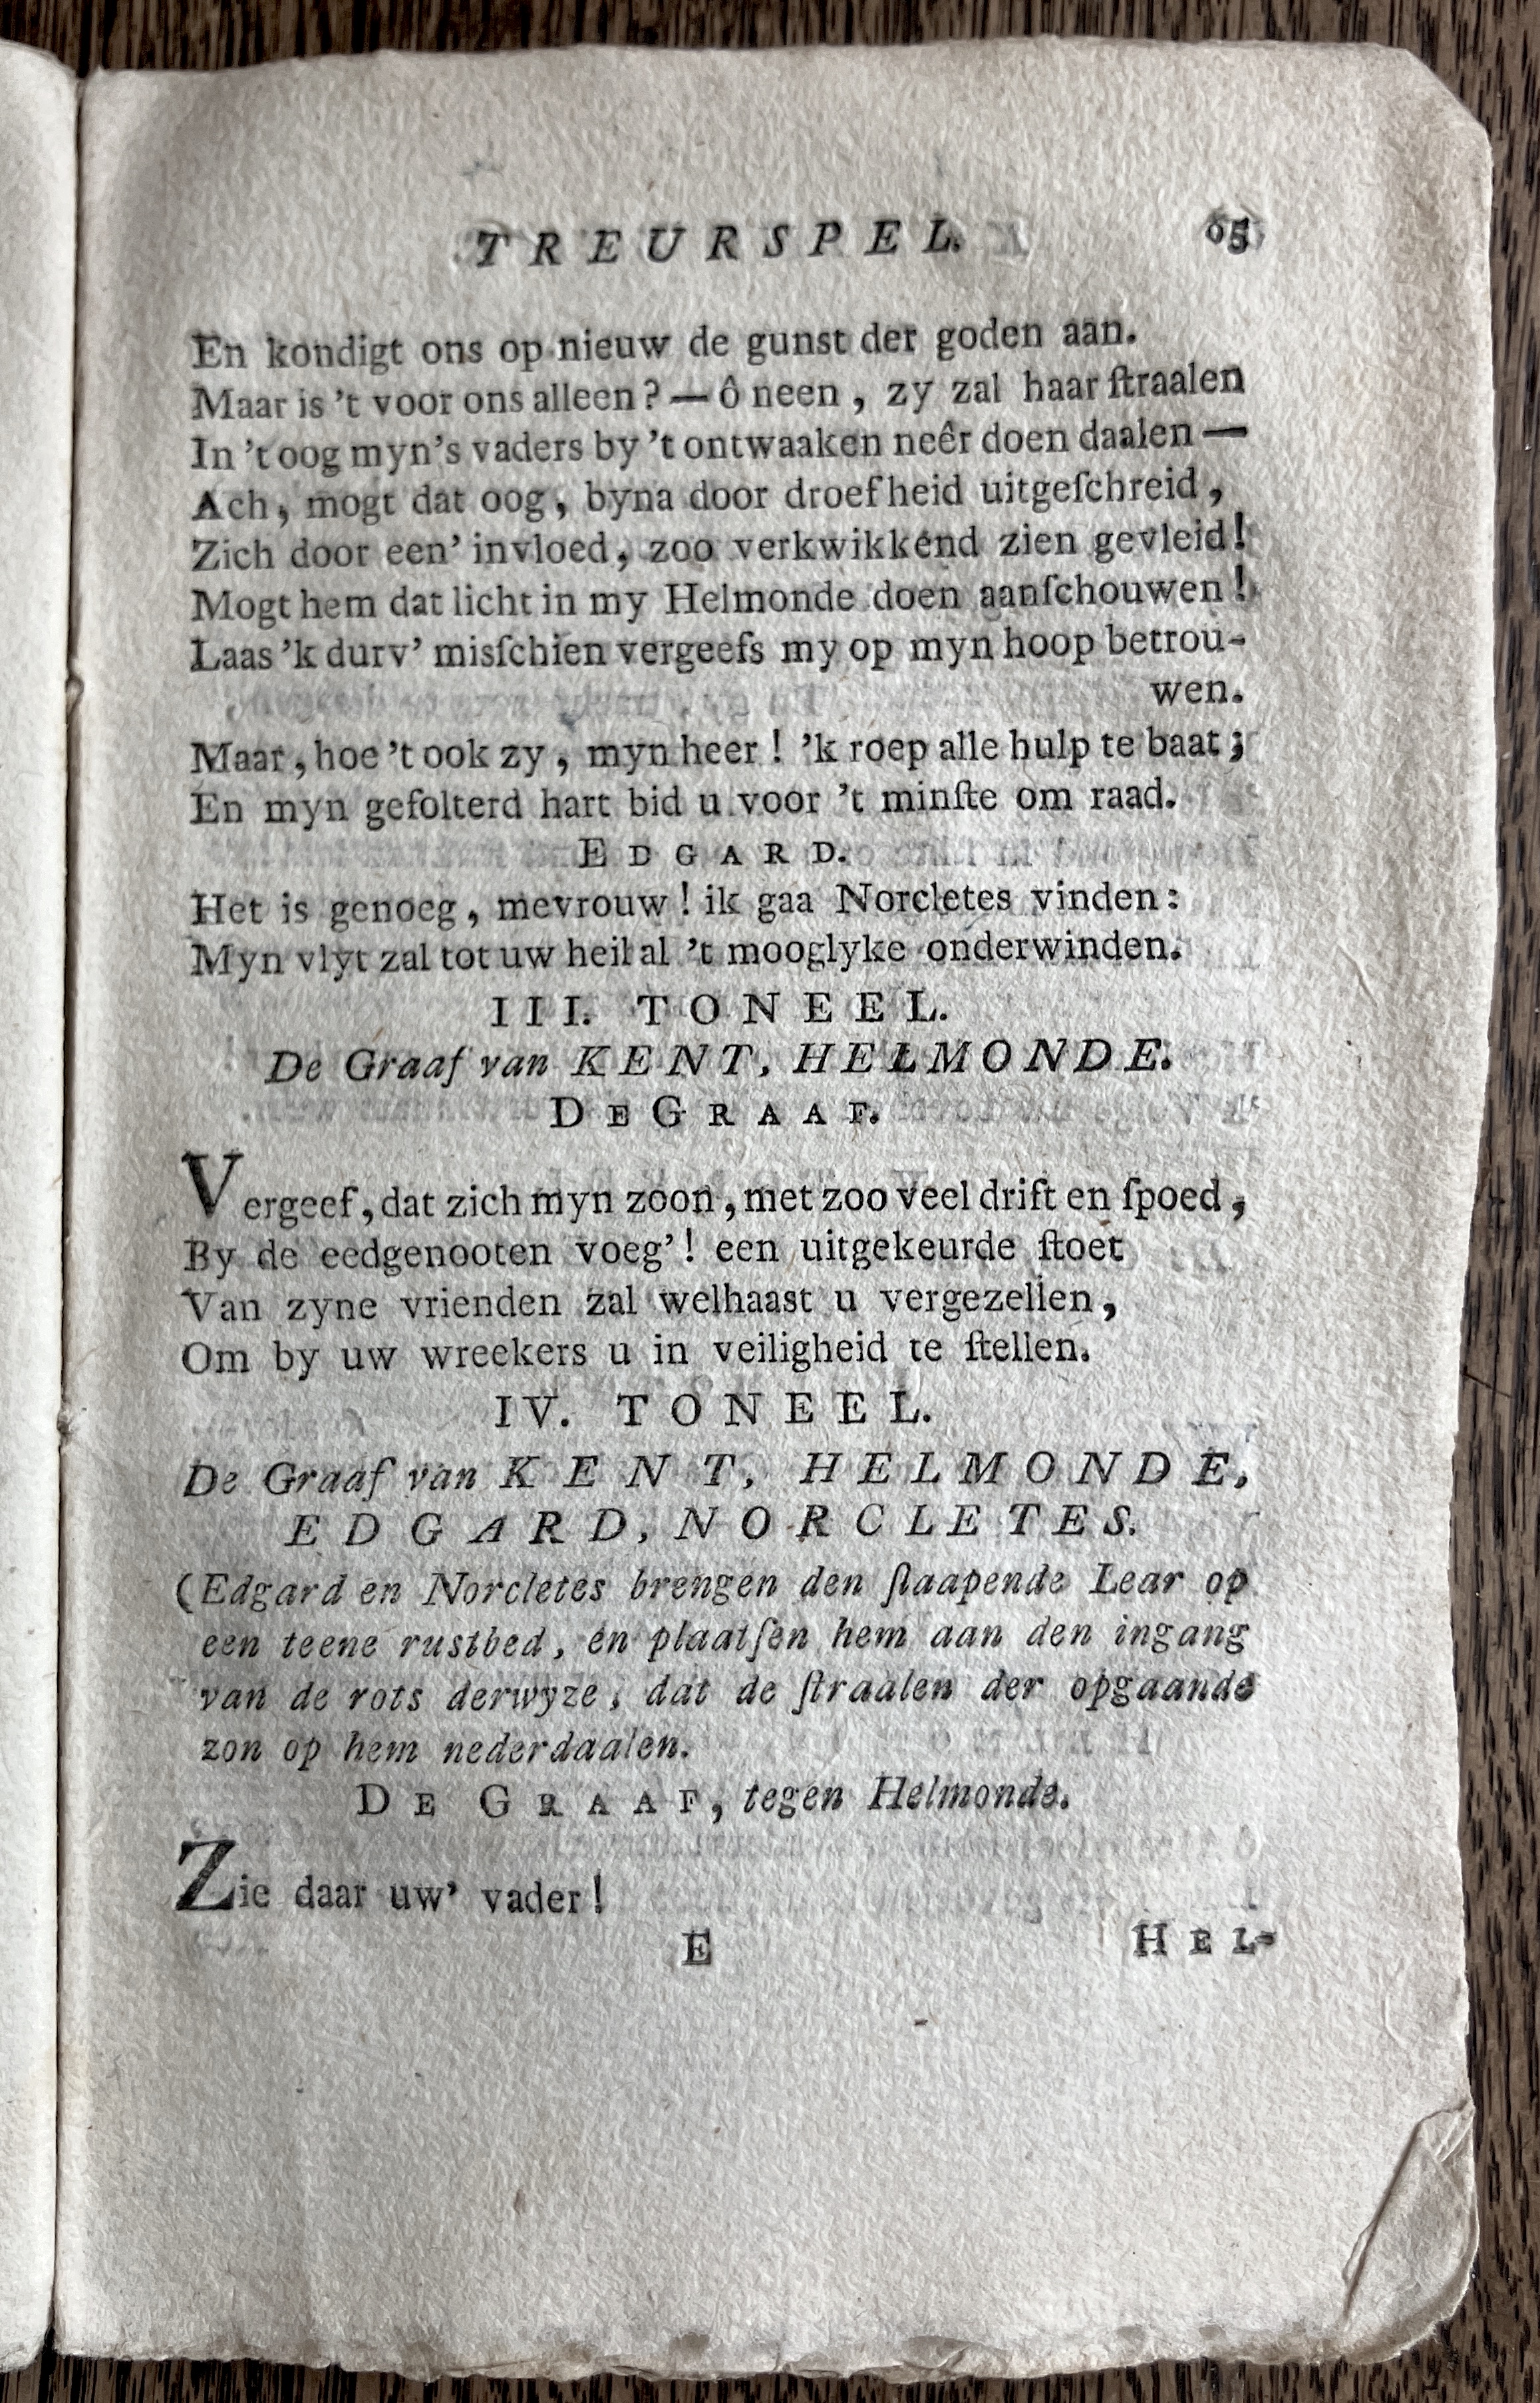 TREURSPEL. 65
En kondigt ons op nieuw de gunst der goden aan.
Maar is 't voor ons alleen? — ô neen, zy zal haar ſtraalen
In 't oog myn's vaders by 't ontwaaken neêr doen daalen —
Ach, mogt dat oog, byna door droefheid uitgeſchreid,
Zich door een' invloed, zoo verkwikkend zien gevleid!
Mogt hem dat licht in my Helmonde doen aanſchouwen!
Laas 'k durv' misſchien vergeefs my op myn hoop betrou-
wen.
Maar, hoe 't ook zy, myn heer! 'k roep alle hulp te baat;
En myn gefolterd hart bid u voor 't minſte om raad.
EDGARD.
Het is genoeg, mevrouw! ik gaa Norcletes vinden:
Myn vlyt zal tot uw heil al 't mooglyke onderwinden.
III. TONEEL.
De Graaf van KENT, HELMONDE.
DE GRAAF.
Vergeef, dat zich myn zoon, met zoo veel drift en ſpoed,
By de eedgenooten voeg'! een uitgekeurde ſtoet
Van zyne vrienden zal welhaast u vergezellen,
Om by uw wreekers u in veiligheid te ſtellen.
IV. TONEEL.
De Graaf van KENT, HELMONDE,
EDGARD, NORCLETES.
(Edgard en Norcletes brengen den ſlaapende Lear op
een teene rustbed, en plaatſen hem aan den ingang
van de rots derwyze, dat de ſtraalen der opgaande
zon op hem nederdaalen.
DE GRAAF, tegen Helmonde.
Zie daar uw' vader!
E HEL-